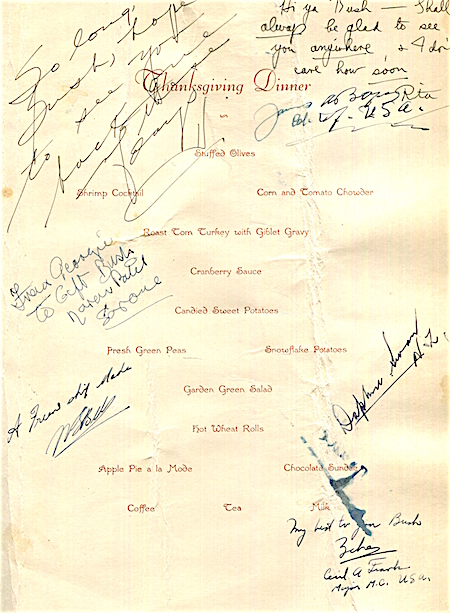 So long
Bush, hope
to see you
back
Hi ya Bush — Shall
always be glad to see
you anywhere & I don'
care how soon
Rita
Thanksgiving Dinner
U.S.A.
Stuffed Olives
Shrimp Cocktail
Corn and Tomato Chowder
Roast Tom Turkey with Giblet Gravy
From Georgie
To Capt Bush
Cranberry Sauce
Candied Sweet Potatoes
Fresh Green Peas
Snowflake Potatoes
A Friendship Made
Garden Green Salad
Daphne
Hot Wheat Rolls
Apple Pie a la Mode
Chocolate Sundae
Coffee
Tea
Milk
My best to you Bush
Cecil A
Major M.C. U.S.A.